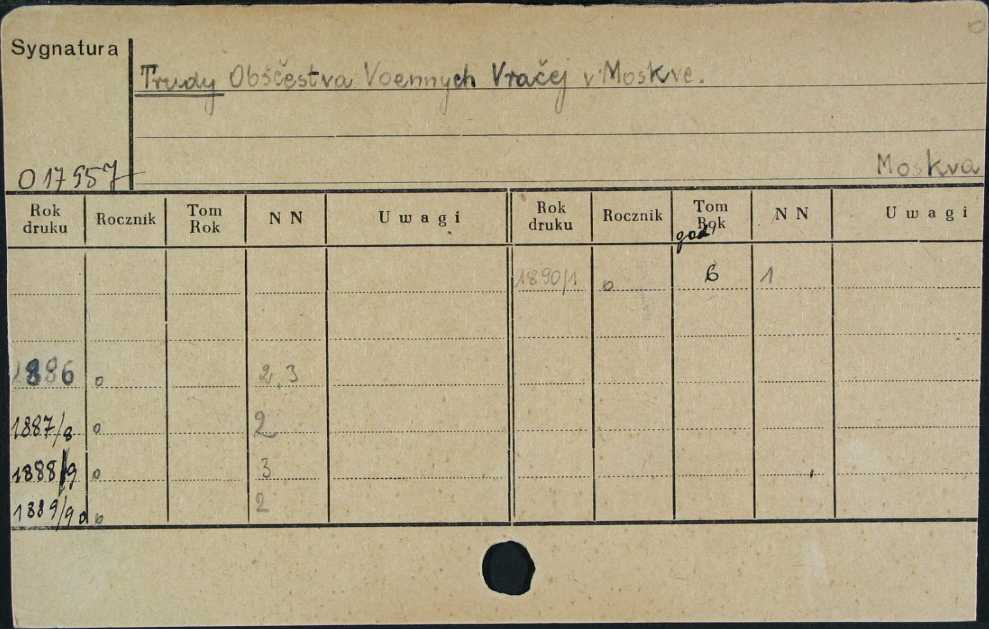 Sygnatura
Trudy Obščestva Voennych Vračej v Moskve.
O 17957
Moskva
Rok druku Rocznik Tom Rok NN Uwagi Rok druku Rocznik Tom Rok NN Uwagi
god
1890/1 o 6 1
1886 o 2, 3
1887/8 o 2
1888/9 o 3
1889/90 o 2